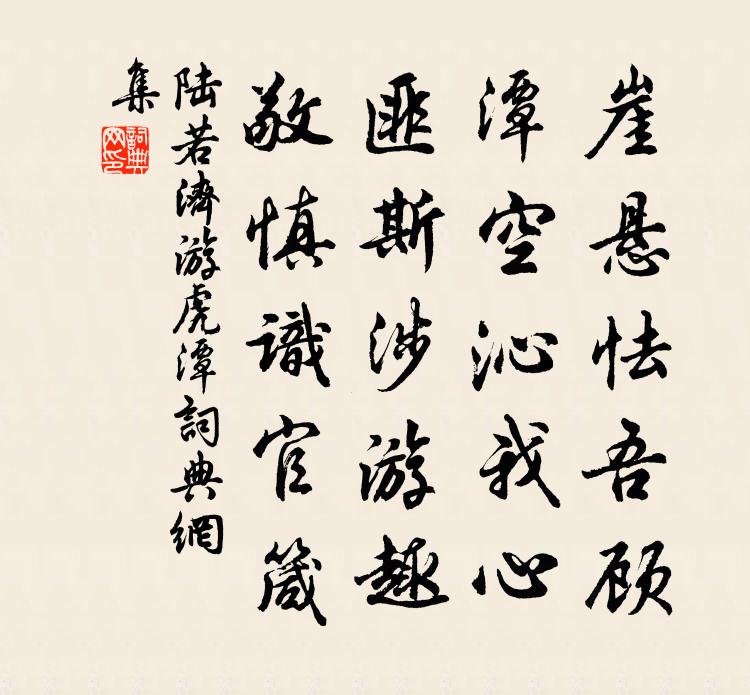 崖悬怯吾顾
潭空沁我心
匪斯涉游趣
敬慎識官箴
陆若濟游虎潭詞典網
集
詞典网印